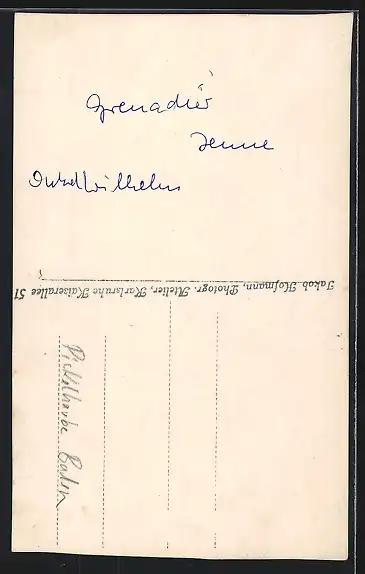 Grenadier
Jenne
Onkel Wilhelm
Jakob Hofmann, Photogr. Atelier, Karlsruhe Kaiserallee 51
Pickelhaube Baden